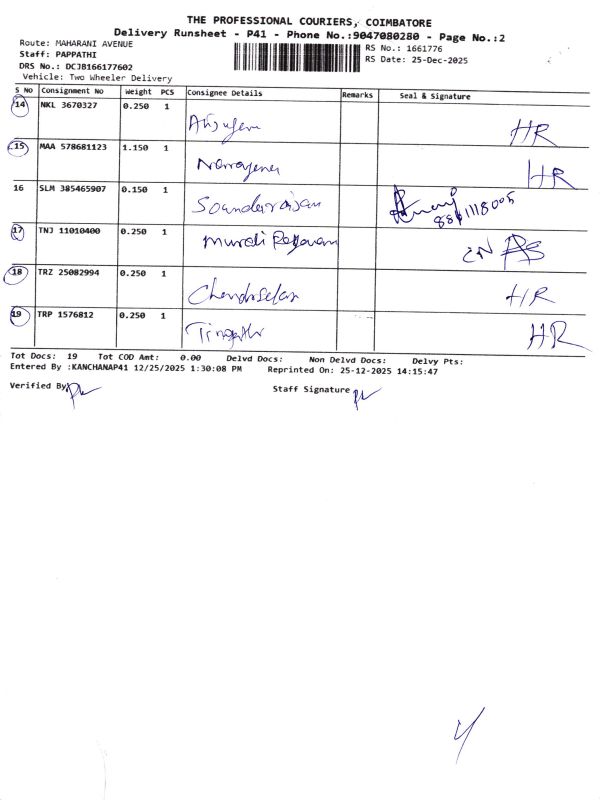 THE PROFESSIONAL COURIERS, COIMBATORE
Delivery Runsheet - P41 - Phone No.:9047080280 - Page No.:2
Route: MAHARANI AVENUE
Staff: PAPPATHI
DRS No.: DCJB166177602
Vehicle: Two Wheeler Delivery
RS No.: 1661776
RS Date: 25-Dec-2025
S NO Consignment No Weight PCS Consignee Details Remarks Seal & Signature
14 NKL 3670327 0.250 1 HR
15 MAA 578681123 1.150 1 Narrayena HR
16 SLM 385465907 0.150 1 Soundarrajan
17 TNJ 11010400 0.250 1 Murali
18 TRZ 25082994 0.250 1 HR
19 TRP 1576812 0.250 1 HR
Tot Docs: 19 Tot COD Amt: 0.00 Delvd Docs: Non Delvd Docs: Delvy Pts:
Entered By :KANCHANAP41 12/25/2025 1:30:08 PM Reprinted On: 25-12-2025 14:15:47
Verified By Staff Signature